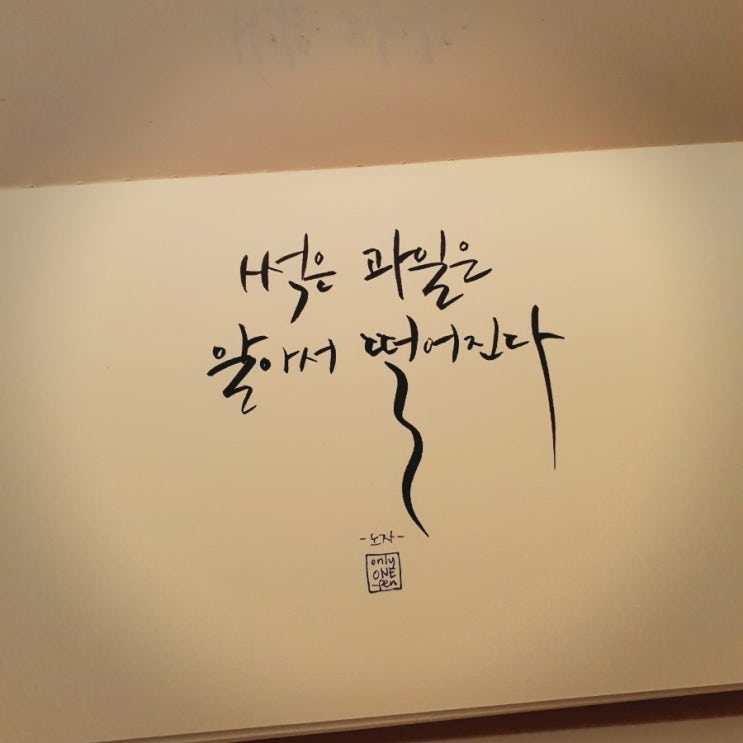 썩은 과일은
알아서 떨어진다
-노자-
only
ONE
-pen